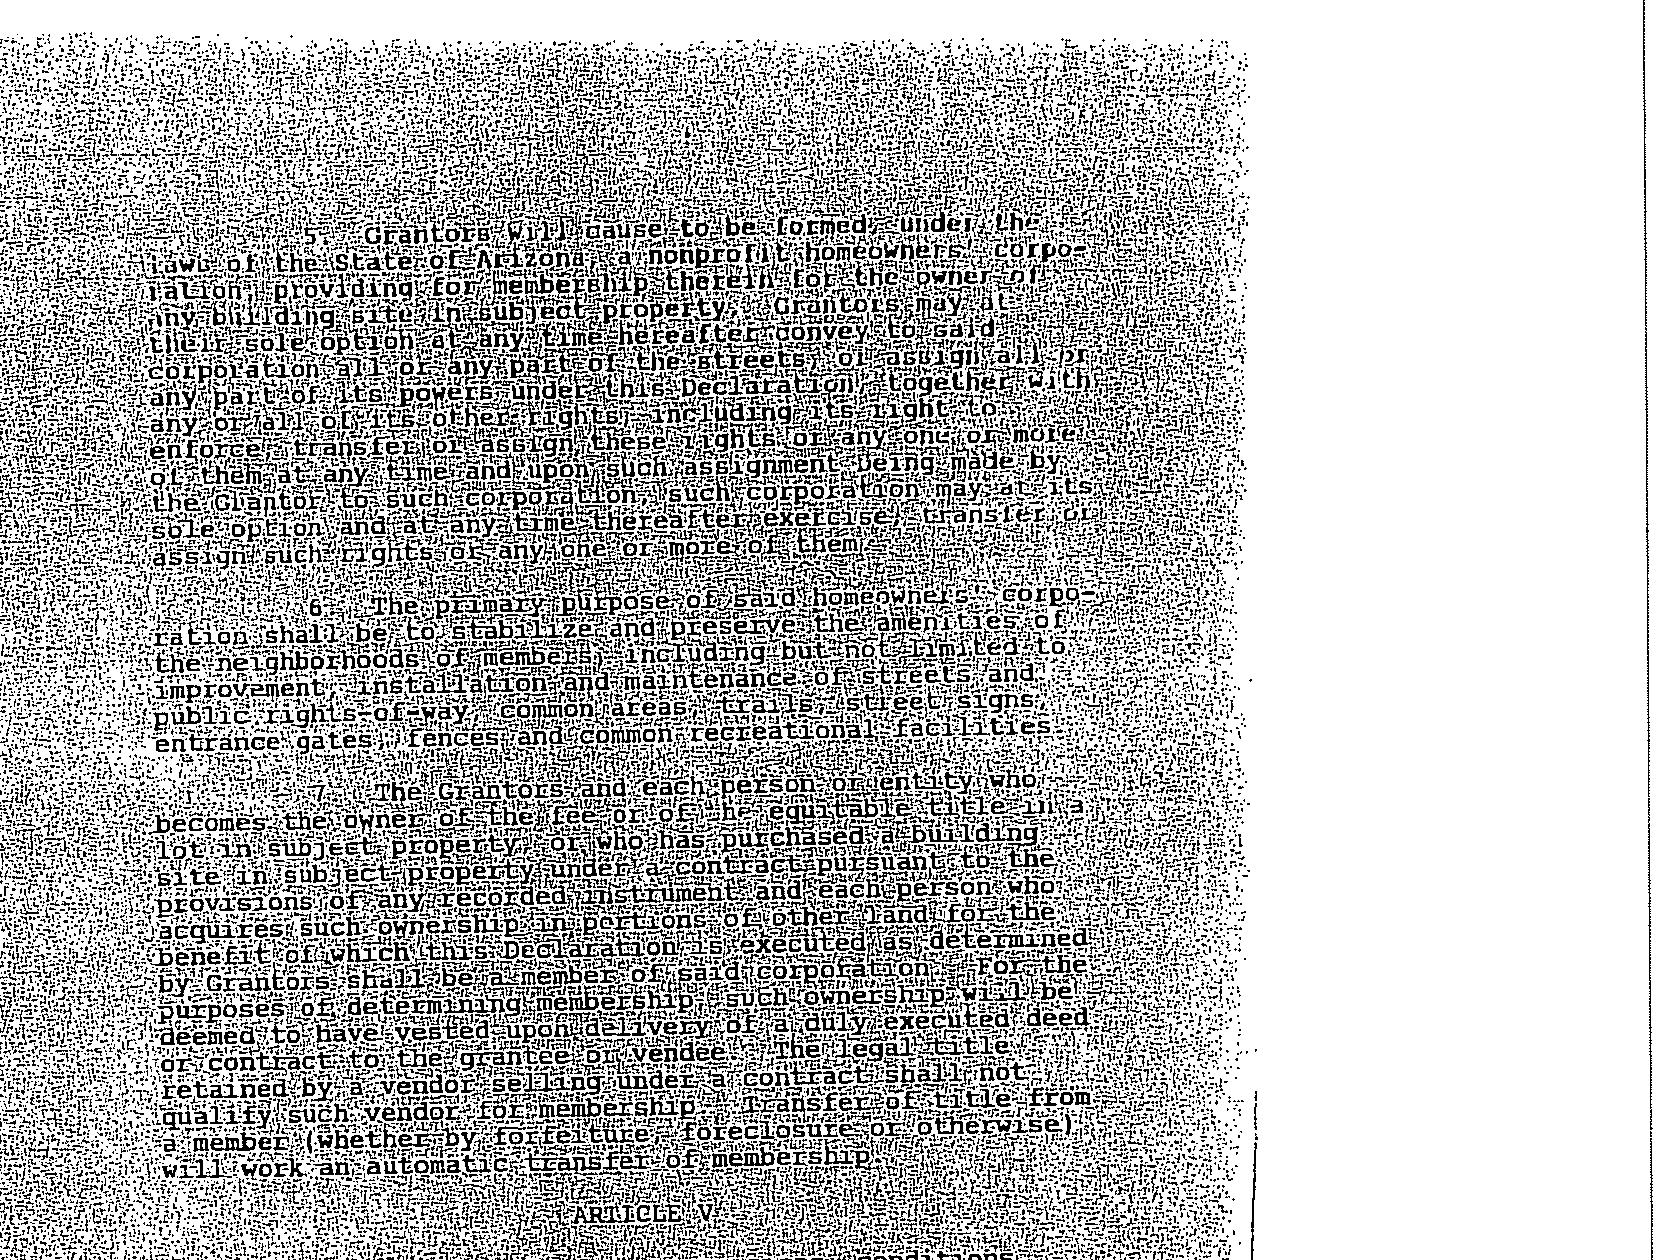 5. Grantors will cause to be formed, under the
laws of the State of Arizona, a nonprofit homeowners' corpo-
ration, providing for membership therein for the owner of
any building site in subject property. Grantors may at
their sole option at any time hereafter convey to said
corporation all or any part of the streets, or assign all or
any part of its powers under this Declaration, together with
any or all of its other rights, including its right to
enforce, transfer or assign these rights or any one or more
of them at any time and upon such assignment being made by
the Grantor to such corporation, such corporation may at its
sole option and at any time thereafter exercise, transfer or
assign such rights or any one or more of them.
6. The primary purpose of said homeowners' corpo-
ration shall be to stabilize and preserve the amenities of
the neighborhoods of members, including but not limited to
improvement, installation and maintenance of streets and
public rights-of-way, common areas, trails, street signs,
entrance gates, fences and common recreational facilities.
7. The Grantors and each person or entity who
becomes the owner of the fee or of the equitable title in a
lot in subject property, or who has purchased a building
site in subject property under a contract pursuant to the
provisions of any recorded instrument and each person who
acquires such ownership in portions of other land for the
benefit of which this Declaration is executed as determined
by Grantors shall be a member of said corporation. For the
purposes of determining membership, such ownership will be
deemed to have vested upon delivery of a duly executed deed
or contract to the grantee or vendee. The legal title
retained by a vendor selling under a contract shall not
qualify such vendor for membership. Transfer of title from
a member (whether by forfeiture, foreclosure or otherwise)
will work an automatic transfer of membership.
ARTICLE V
conditions